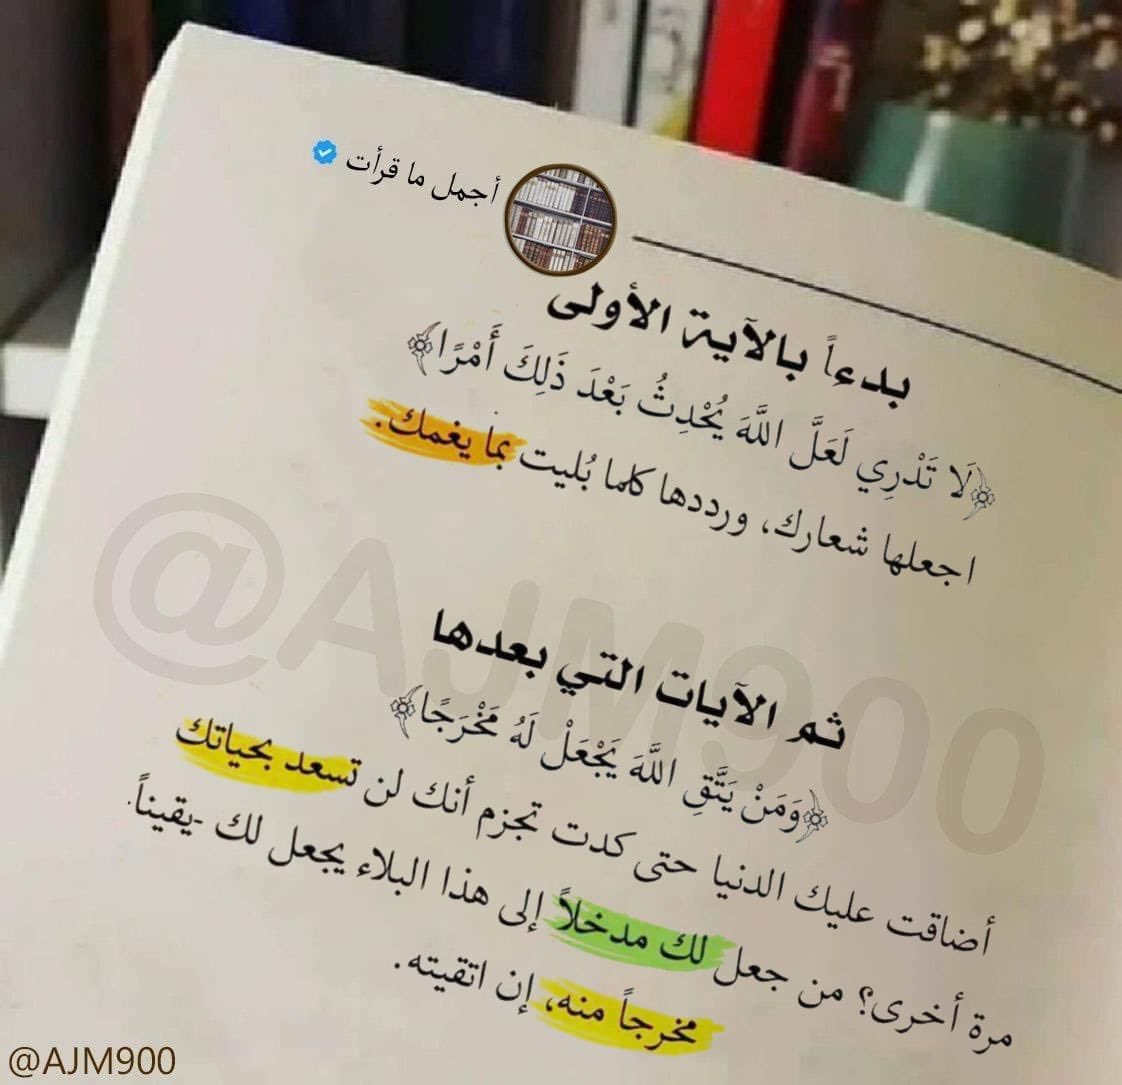 أجمل ما قرأت
بدءاً بالآية الأولى
﴿لَا تَدْرِي لَعَلَّ اللَّهَ يُحْدِثُ بَعْدَ ذَٰلِكَ أَمْرًا﴾
اجعلها شعارك، ورددها كلما بُليت بما يغمك.
@AJM900
ثم الآيات التي بعدها
﴿وَمَنْ يَتَّقِ اللَّهَ يَجْعَلْ لَهُ مَخْرَجًا﴾
أضاقت عليك الدنيا حتى كدت تجزم أنك لن تسعد بحياتك
مرة أخرى؟ من جعل لك مدخلاً إلى هذا البلاء يجعل لك -يقيناً-
مخرجاً منه، إن اتقيته.
@AJM900